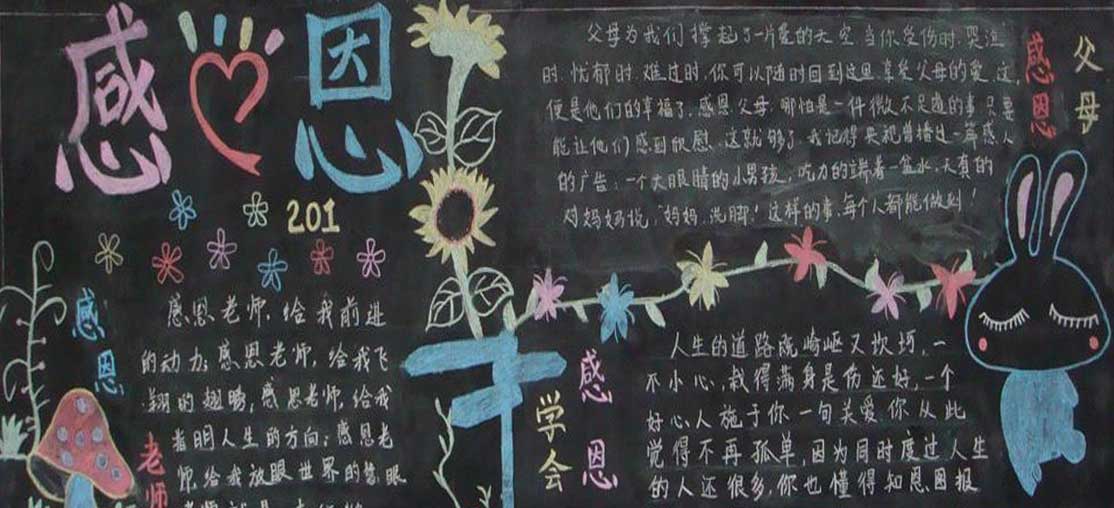 感恩
201
感恩
父母
父母为我们撑起了一片爱的天空.当你受伤时.哭泣
时.忧郁时.难过时.你可以随时回到这里.享受父母的爱.这
便是他们的幸福了.感恩父母.哪怕是一件微不足道的事.只要
能让他们感到欣慰.这就够了.我记得央视曾播过一库感人
的广告:一个大眼睛的小男孩,吃力的端着一盆水,天真的
对妈妈说,"妈妈,洗脚!这样的事,每个人都能做到!
感恩
老师
感恩老师,给我前进
的动力;感恩老师,给我飞
翔的翅膀;感恩老师,给我
着明人生的方向;感恩老
师,给我放眼世界的慧眼
学会
感恩
人生的道路既崎岖又坎坷,一
不小心,栽得满身是伤还好,一个
好心人施于你一句关爱你从此
觉得不再孤单,因为同时度过人生
的人还很多,你也懂得知恩图报